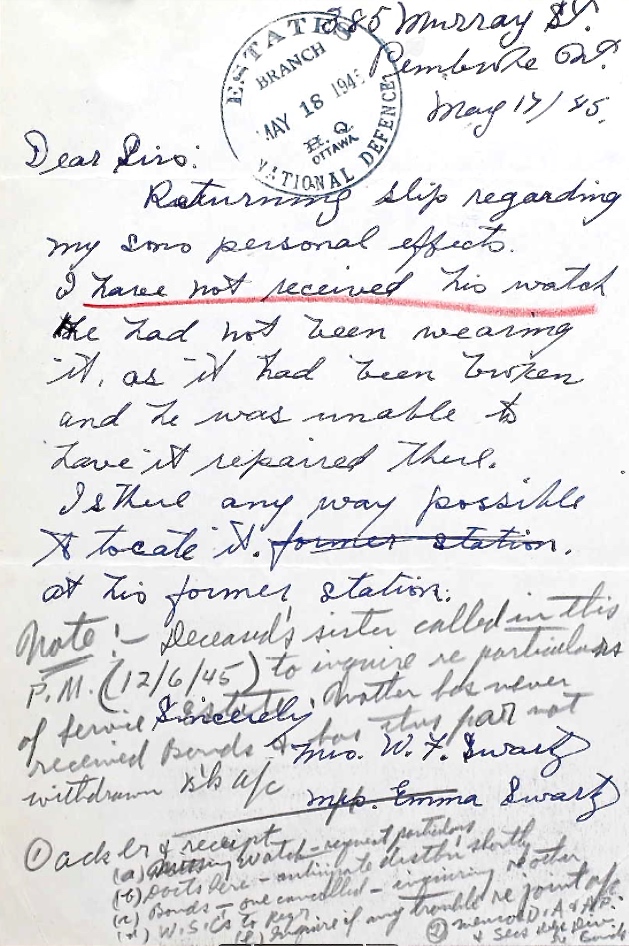 385 Murray St.
Pembroke Ont.
May 17/45.
ESTATES
BRANCH
MAY 18 194
H.Q.
OTTAWA
NATIONAL DEFENCE
Dear Sirs:
Returning slip regarding
my sons personal effects.
I have not received his watch
He had not been wearing
it, as it had been broken
and he was unable to
have it repaired there.
Is there any way possible
to locate it. former station.
at his former station.
Note:- Deceased's sister called in this
P.M. (12/6/45) to inquire re particulars
of service estate. Mother has never
received Bonds & has thus far not
withdrawn B'k a/c
Sincerely
Mrs. W. F. Swartz
Mrs. Emma Swartz
① ack ltr & receipt
(a) Missing watch - request particulars
(b) Docts here - anticipate distbn shortly
(c) Bonds - one cancelled - inquiring other
(d) W.S.G's to Regr
(e) Inquire if any trouble re joint a/c
② memo D. A & A.P.
& Secs